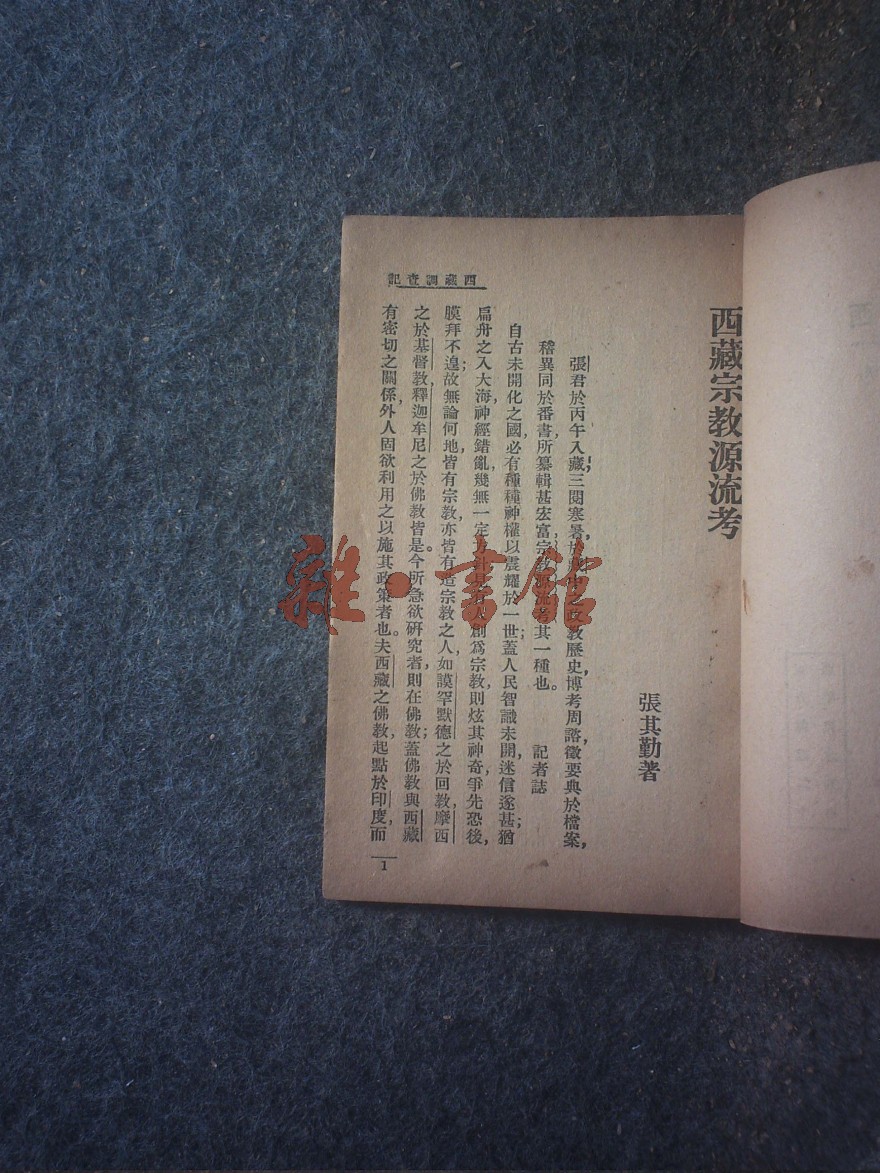 西藏宗教源流考
張其勤著
張君於丙午入藏,三閱寒暑,於藏中之政教歷史,博考周諮,徵要典於檔案,
稽異同於番書,所纂輯甚宏富,宗教源流考其一種也。 記者誌
自古未開化之國,必有種種神權以震耀於一世;蓋人民智識未開,迷信遂甚;猶
扁舟之入大海,神經錯亂,幾無一定方針,見有人創爲宗教,則炫其神奇,爭先恐後,
膜拜不遑;故無論何地,皆有宗教,亦皆有造宗教之人,如謨罕默德之於回教,摩西
之於基督教,釋迦牟尼之於佛教皆是。今所急欲研究者,則在佛教;蓋佛教與西藏
有密切之關係,外人固欲利用之以施其政策者也。夫西藏之佛教,起點於印度,而
西藏調查記
1
雜·書館